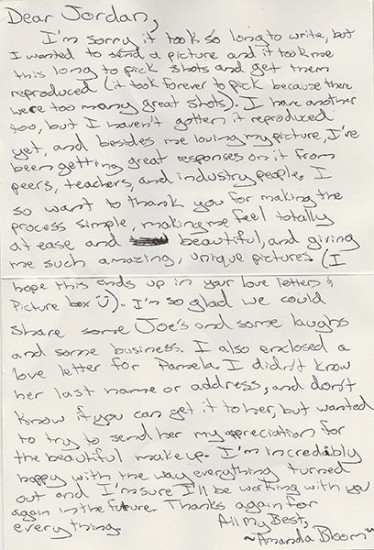 Dear Jordan,
I'm sorry it took so long to write, but
I wanted to send a picture and it took me
this long to pick shots and get them
reproduced (it took forever to pick because there
were too many great shots). I have another
too, but I haven't gotten it reproduced
yet, and besides me loving my picture, I've
been getting great responses on it from
peers, teachers, and industry people. I
so want to thank you for making the
process simple, making me feel totally
at ease and beautiful, and giving
me such amazing, unique pictures. (I
hope this ends up in your love letters &
Picture box Ü). I'm so glad we could
share some Joe's and some laughs
and some business. I also enclosed a
love letter for Pamela. I didn't know
her last name or address, and don't
know if you can get it to her, but wanted
to try to send her my appreciation for
the beautiful makeup. I'm incredibly
happy with the way everything turned
out and I'm sure I'll be working with you
again in the future. Thanks again for
everything.
All My Best,
~Amanda Bloom